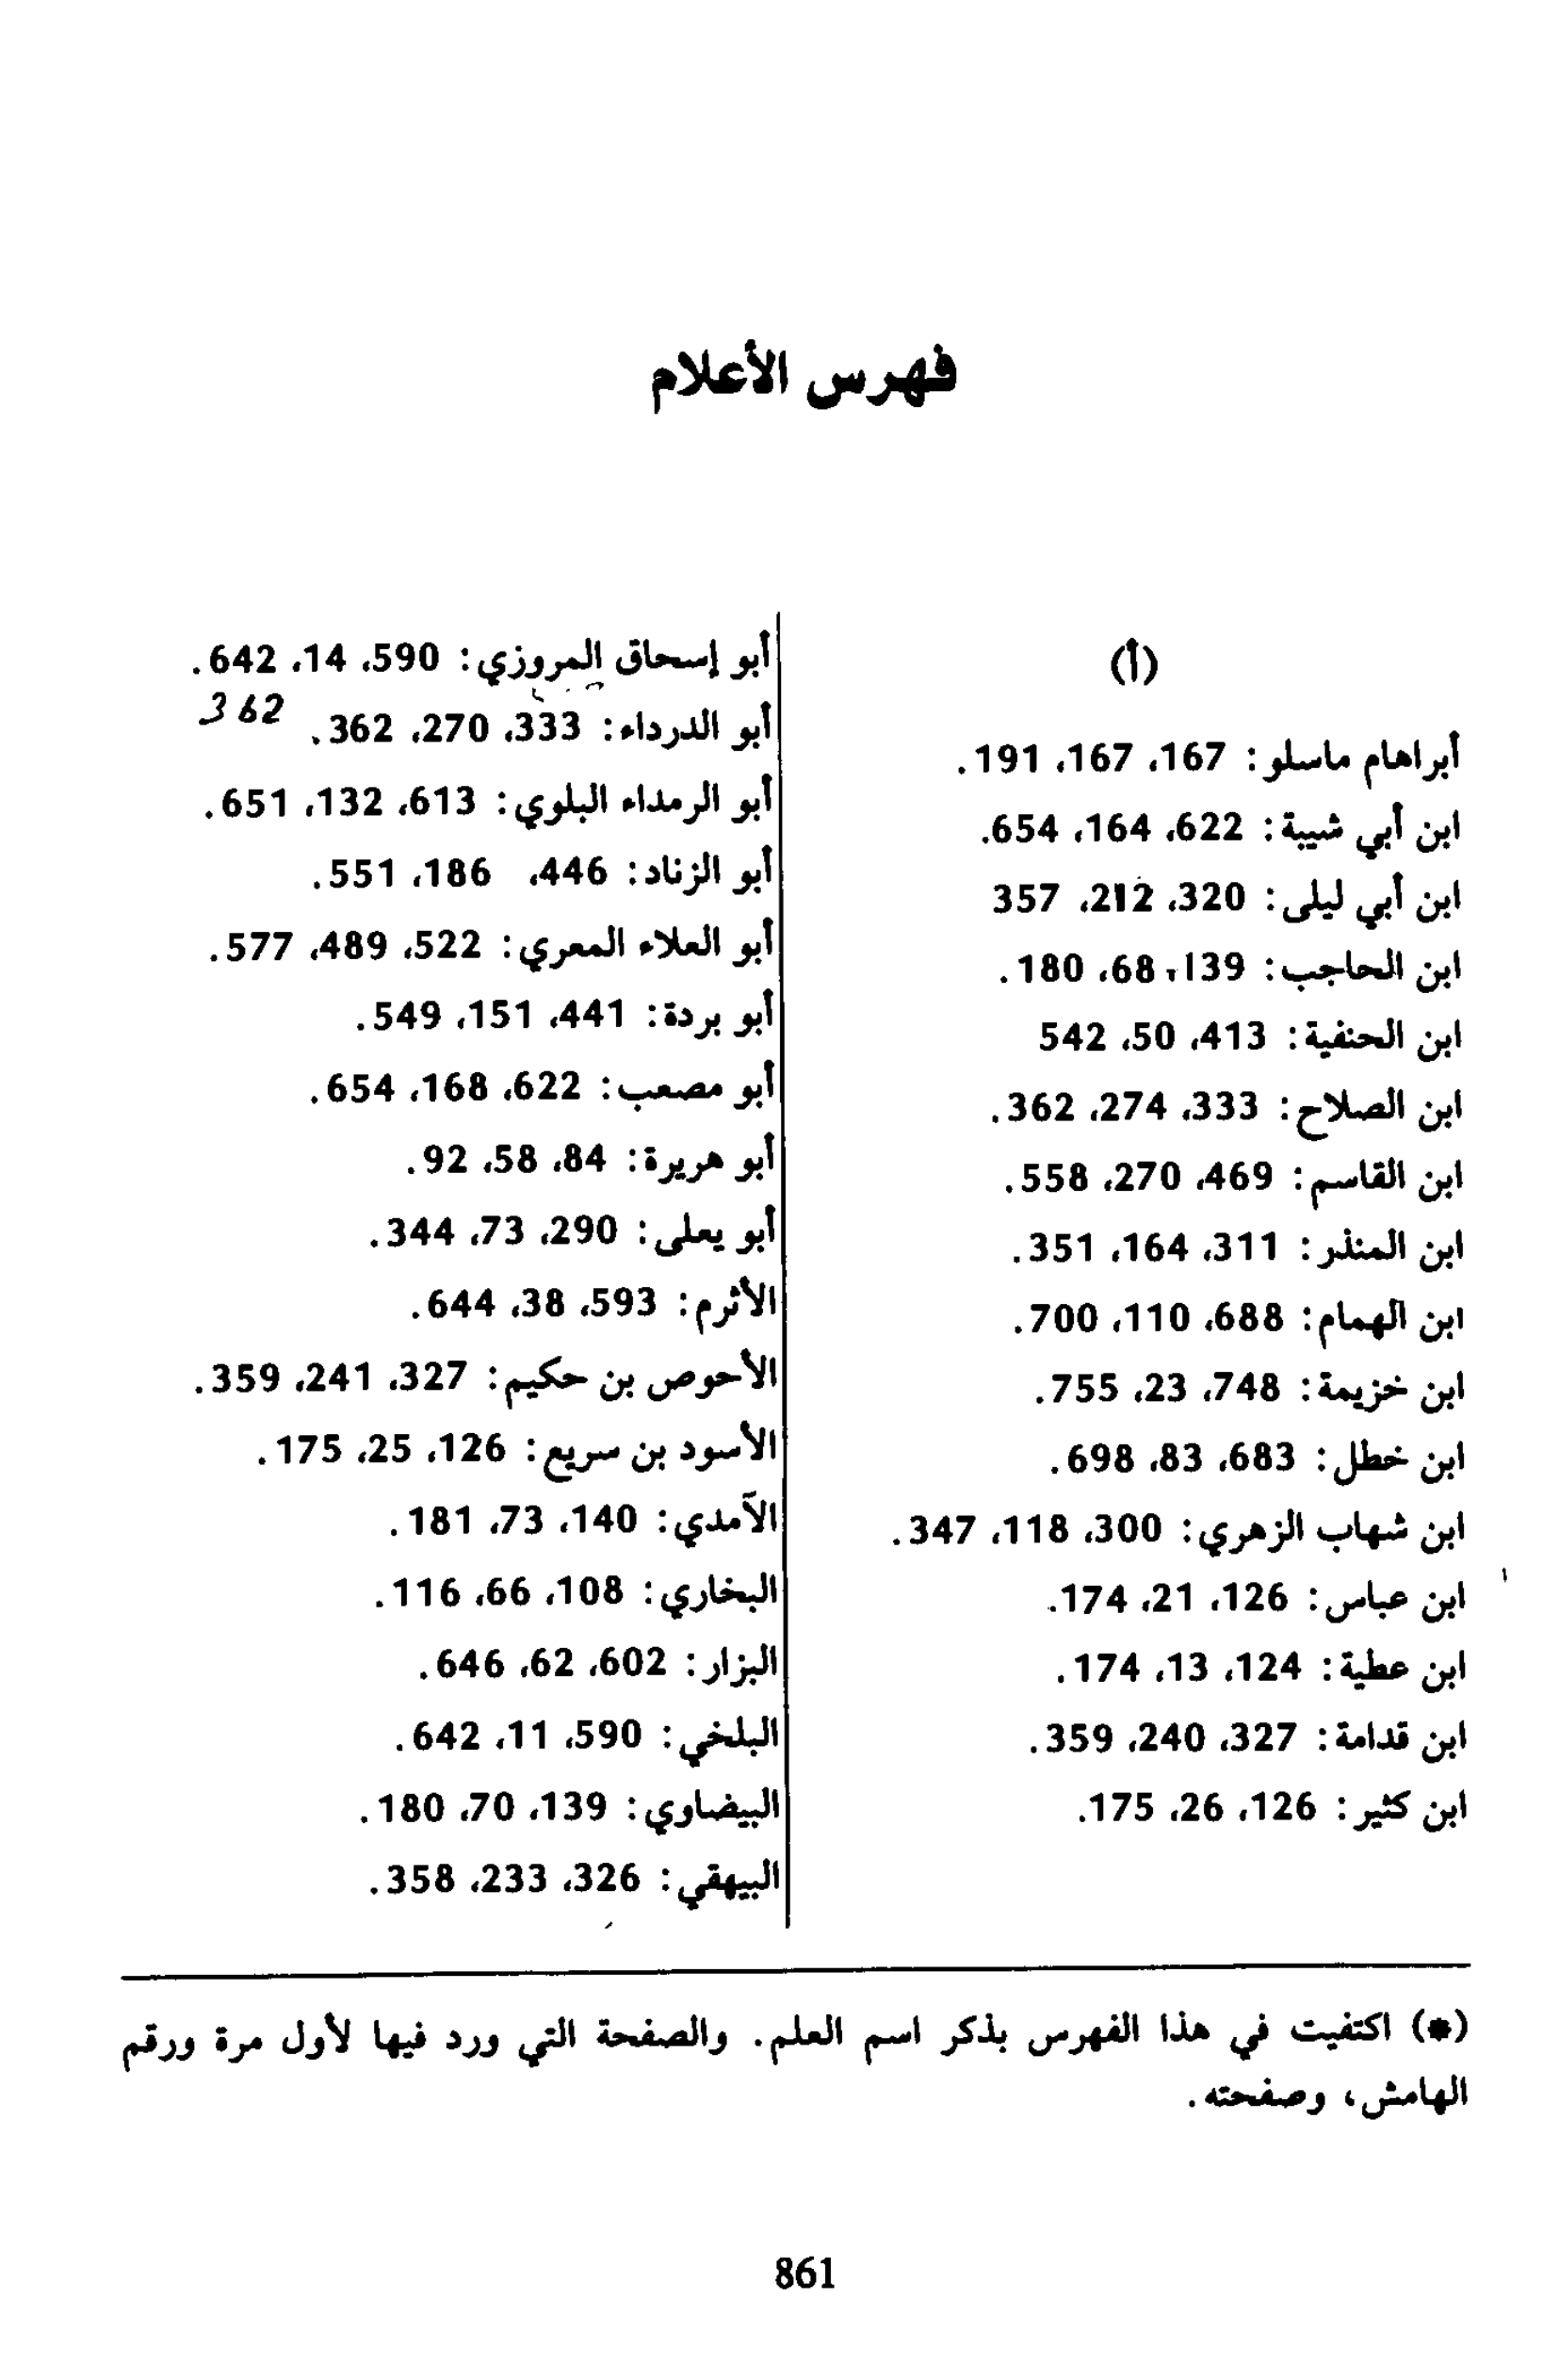 فهرس الأعلام
(أ)
أبراهام ماسلو: 167، 167، 191.
ابن أبي شيبة: 622، 164، 654.
ابن أبي ليلى: 320، 212، 357
ابن الحاجب: 139، 68، 180.
ابن الحنفية: 413، 50، 542
ابن الصلاح: 333، 274، 362.
ابن القاسم: 469، 270، 558.
ابن المنذر: 311، 164، 351.
ابن الهمام: 688، 110، 700.
ابن خزيمة: 748، 23، 755.
ابن خطل: 683، 83، 698.
ابن شهاب الزهري: 300، 118، 347.
ابن عباس: 126، 21، 174.
ابن عطية: 124، 13، 174.
ابن قدامة: 327، 240، 359.
ابن كثير: 126، 26، 175.
أبو إسحاق المروزي: 590، 14، 642.
أبو الدرداء: 333، 270، 362. 362
أبو الرمداء البلوي: 613، 132، 651.
أبو الزناد: 446، 186، 551.
أبو العلاء المعري: 522، 489، 577.
أبو بردة: 441، 151، 549.
أبو مصعب: 622، 168، 654.
أبو هريرة: 84، 58، 92.
أبو يعلى: 290، 73، 344.
الأثرم: 593، 38، 644.
الأحوص بن حكيم: 327، 241، 359.
الأسود بن سريع: 126، 25، 175.
الآمدي: 140، 73، 181.
البخاري: 108، 66، 116.
البزار: 602، 62، 646.
البلخي: 590، 11، 642.
البيضاوي: 139، 70، 180.
البيهقي: 326، 233، 358.
(*) اكتفيت في هذا الفهرس بذكر اسم العلم. والصفحة التي ورد فيها لأول مرة ورقم
الهامش، وصفحته.
861